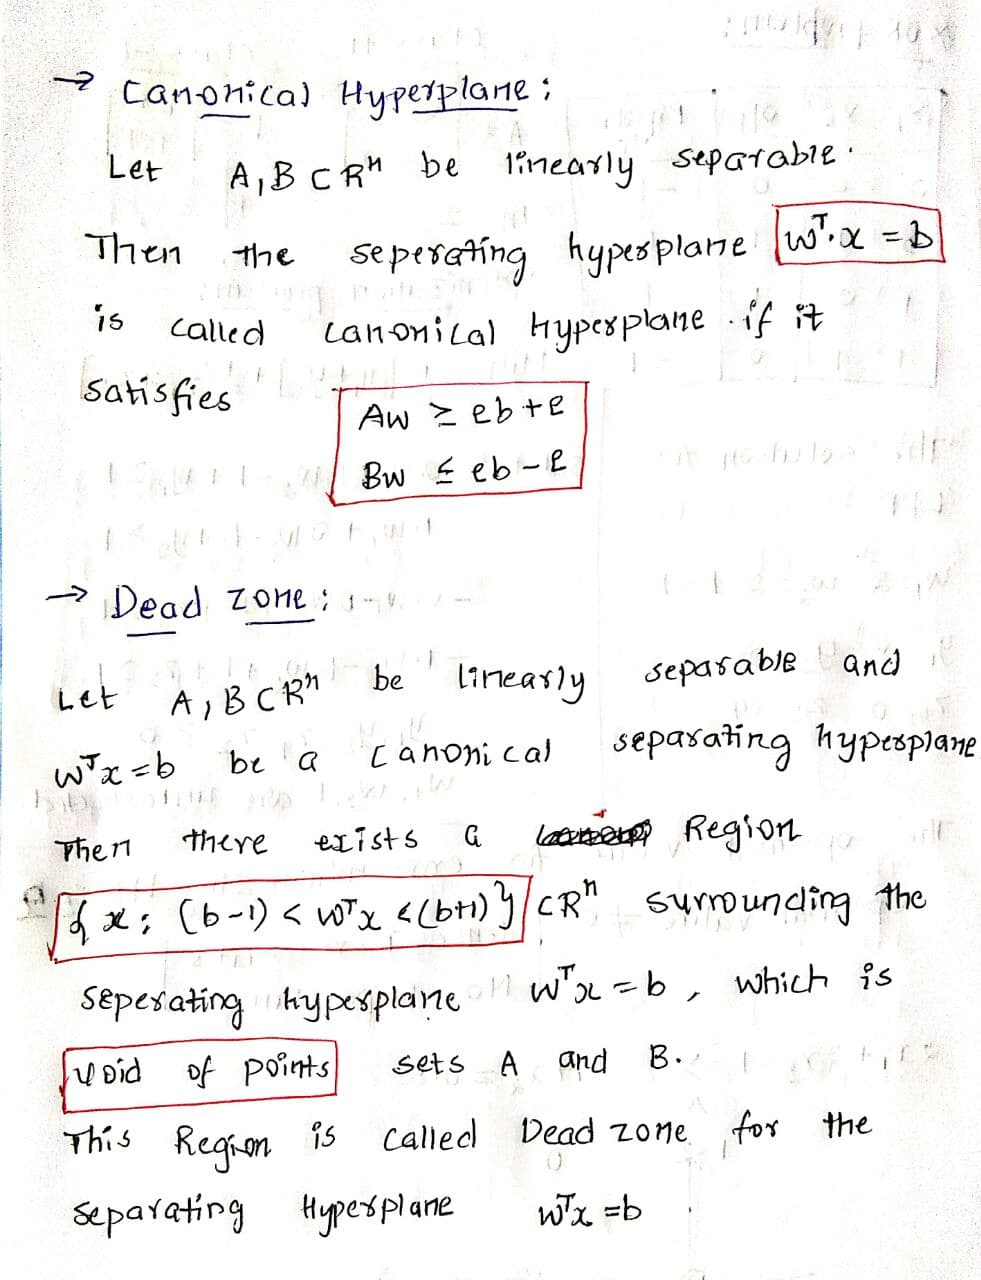 → Canonical Hyperplane :
Let A, B ⊂ Rⁿ be linearly separable.
Then the seperating hyperplane wᵀ.x = b
is called canonical hyperplane if it
satisfies
Aw ≥ eb + e
Bw ≤ eb - e
→ Dead zone :
Let A, B ⊂ Rⁿ be linearly separable and
wᵀx = b be a canonical separating hyperplane
Then there exists a Region
{ x ; (b-1) < wᵀx < (b+1) } ⊂ Rⁿ surrounding the
seperating hyperplane wᵀx = b, which is
void of points sets A and B.
This Region is called Dead zone for the
separating Hyperplane wᵀx = b